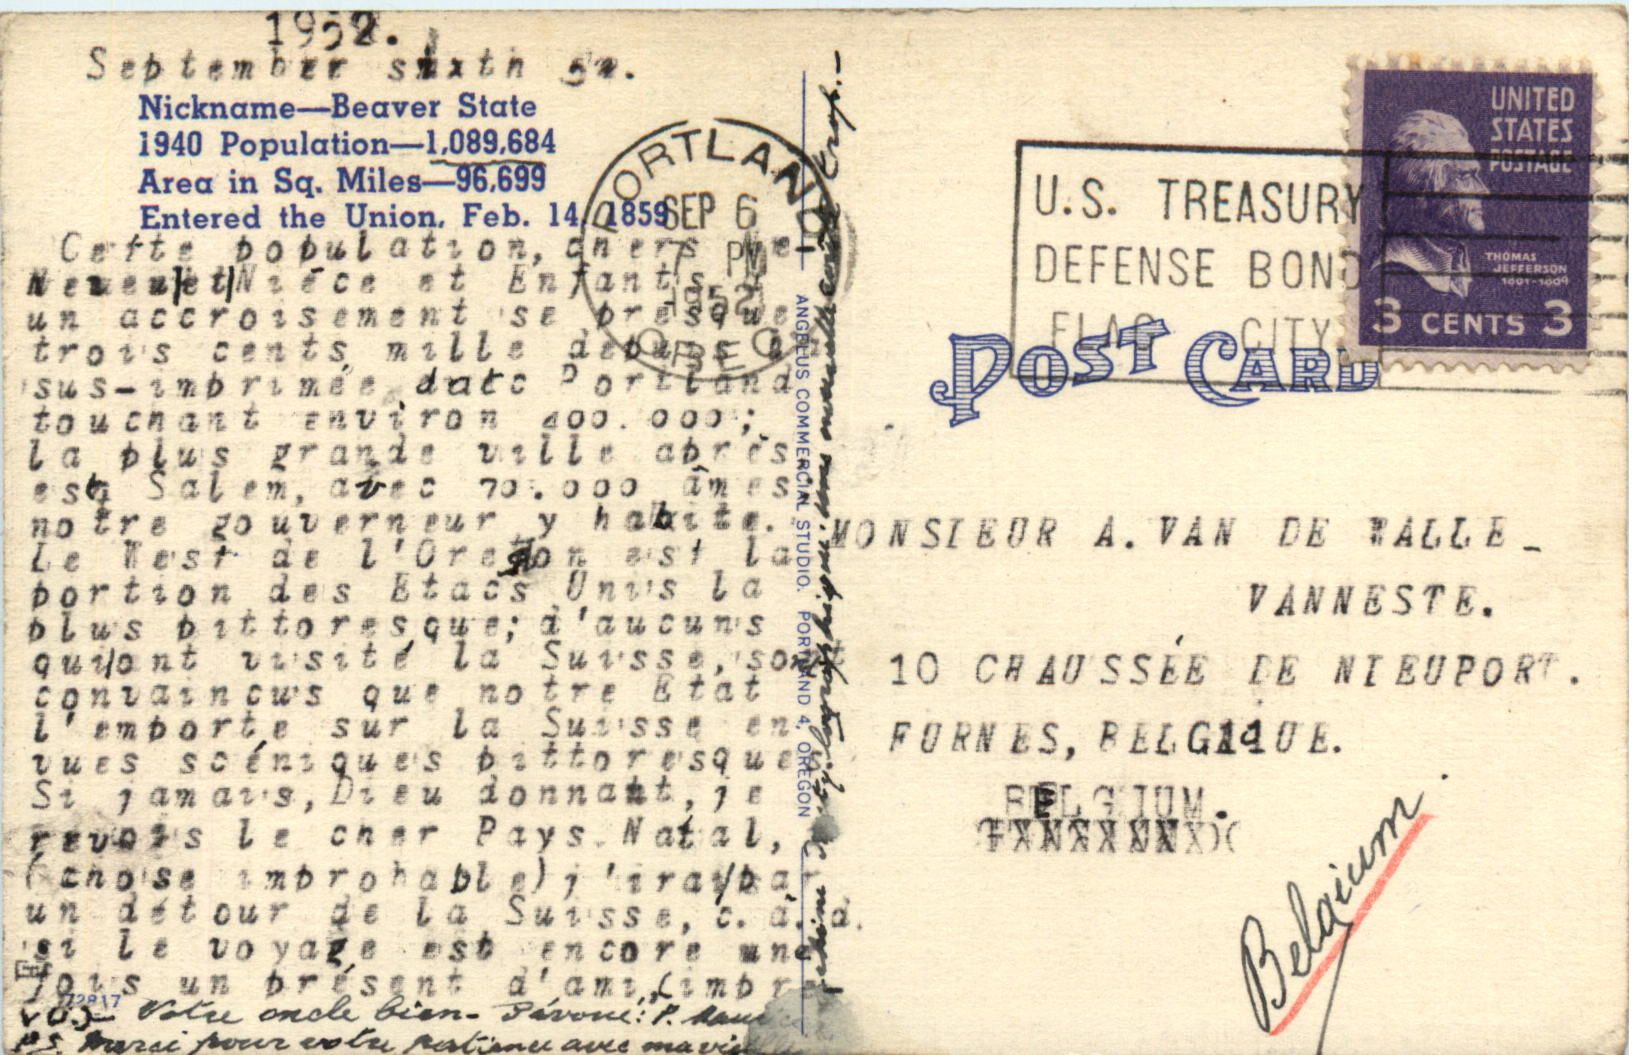 1952.
September sixth 52.
Nickname—Beaver State
1940 Population—1,089,684
Area in Sq. Miles—96,699
Entered the Union, Feb. 14, 1859
Cette population, chers
Neveu et Nièce et Enfants
un accroisement se presque
trois cents mille depuis
sus-imprimée date Portland
touchant environ 400.000;
la plus grande ville après
est Salem, avec 70.000 âmes
notre gouverneur y habite.
Le West de l'Oregon est la
portion des Etacs Unis la
plus pittoresque; d'aucuns
qui ont visité la Suisse, sont
convaincus que notre Etat
l'emporte sur la Suisse en
vues scéniques pittoresque
Si jamais, Dieu donnant, je
revois le cher Pays Natal,
(chose improbable) j'irai par
un détour de la Suisse, c.à.d.
si le voyage est encore une
fois un présent d'ami, (impr
72817
Votre oncle bien- Dévoué: P.
P.S. Merci pour votre patience avec
ANGELUS COMMERCIAL STUDIO. PORTLAND 4, OREGON
PORTLAND
SEP 6
7 PM
1952
OREG
U.S. TREASURY
DEFENSE BOND
FLAG CITY
UNITED
STATES
POSTAGE
THOMAS
JEFFERSON
1801-1809
3 CENTS 3
POST CARD
MONSIEUR A. VAN DE WALLE_
VANNESTE.
10 CHAUSSÉE DE NIEUPORT.
FURNES, BELGIQUE.
BELGIUM.
Belgium